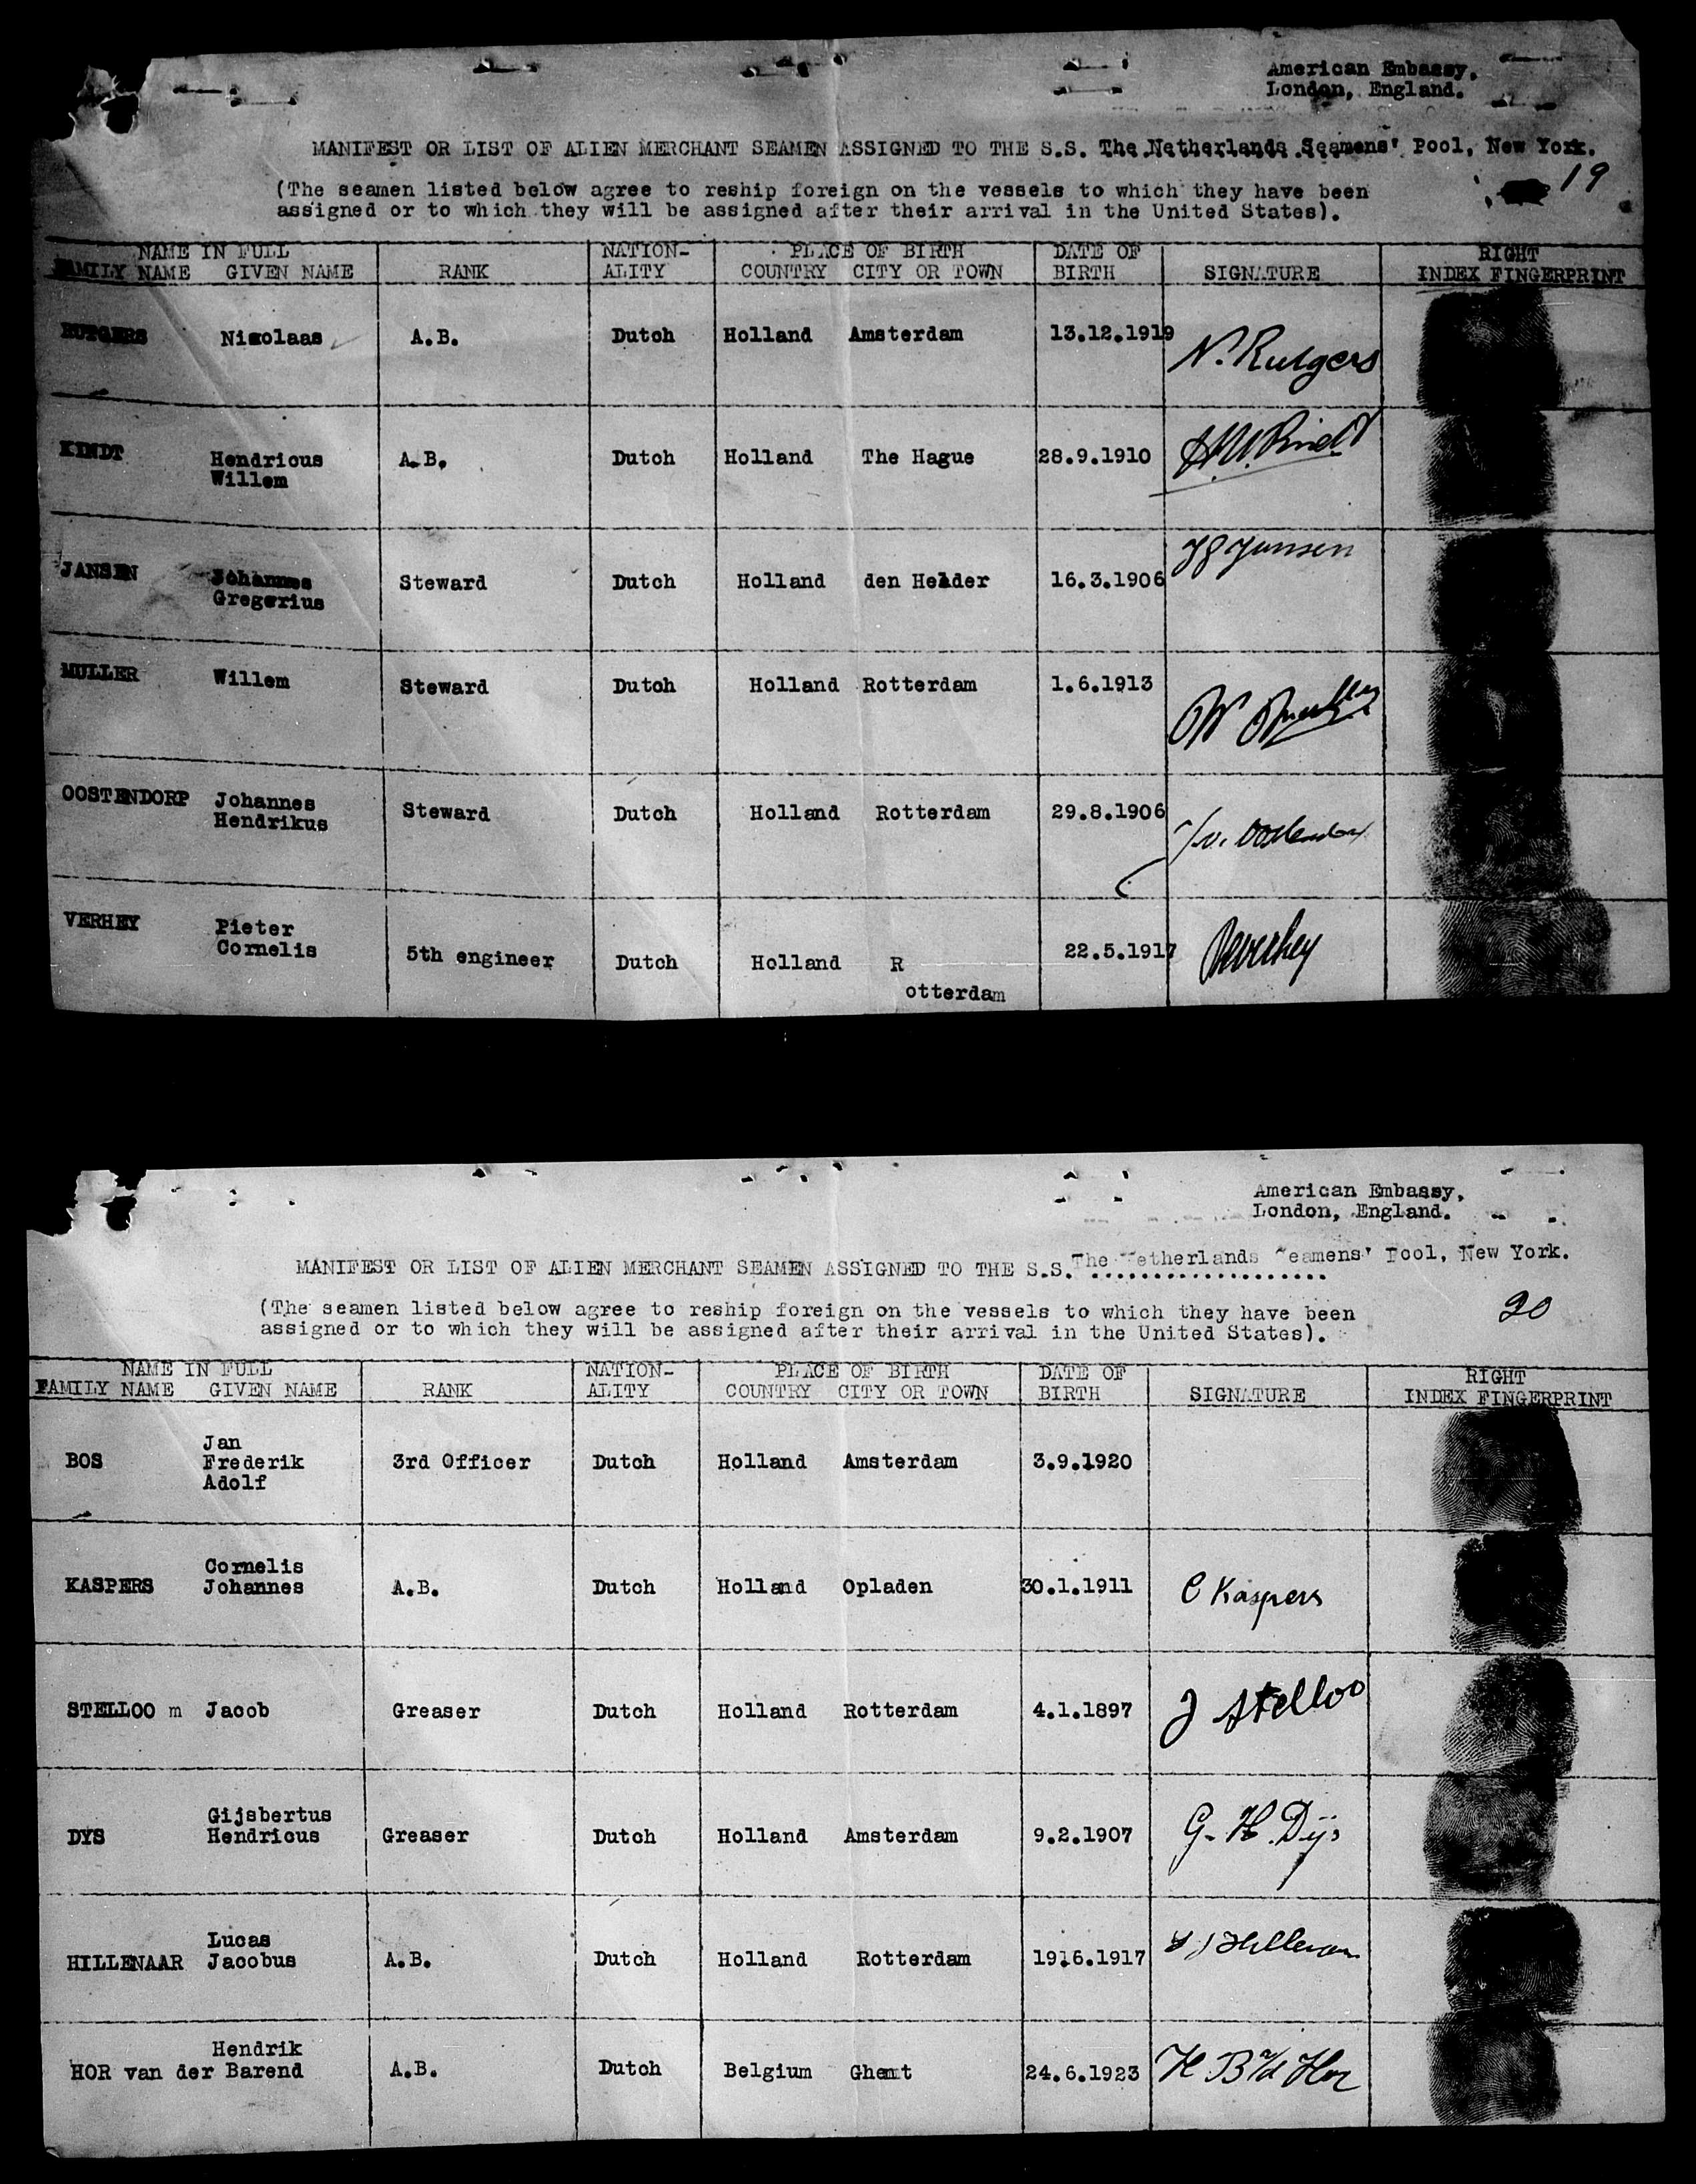 American Embassy,
London, England.
MANIFEST OR LIST OF ALIEN MERCHANT SEAMEN ASSIGNED TO THE S.S. The Netherlands Seamens' Pool, New York.
19
(The seamen listed below agree to reship foreign on the vessels to which they have been
assigned or to which they will be assigned after their arrival in the United States).
NAME IN FULL NATION- PLACE OF BIRTH DATE OF RIGHT
FAMILY NAME GIVEN NAME RANK ALITY COUNTRY CITY OR TOWN BIRTH SIGNATURE INDEX FINGERPRINT
RUTGERS Nikolaas A.B. Dutch Holland Amsterdam 13.12.1919 N. Rutgers
KINDT Hendricus A.B. Dutch Holland The Hague 28.9.1910 H.W. Kindt
Willem
JANSEN Johannes Steward Dutch Holland den Helder 16.3.1906 JG Jansen
Gregorius
MULLER Willem Steward Dutch Holland Rotterdam 1.6.1913 W Muller
OOSTENDORP Johannes Steward Dutch Holland Rotterdam 29.8.1906
Hendrikus
VERHEY Pieter
Cornelis 5th engineer Dutch Holland R 22.5.1917 Verhey
otterdam
American Embassy,
London, England.
MANIFEST OR LIST OF ALIEN MERCHANT SEAMEN ASSIGNED TO THE S.S. The etherlands eamens' Pool, New York.
20
(The seamen listed below agree to reship foreign on the vessels to which they have been
assigned or to which they will be assigned after their arrival in the United States).
NAME IN FULL NATION- PLACE OF BIRTH DATE OF RIGHT
FAMILY NAME GIVEN NAME RANK ALITY COUNTRY CITY OR TOWN BIRTH SIGNATURE INDEX FINGERPRINT
Jan
BOS Frederik 3rd Officer Dutch Holland Amsterdam 3.9.1920
Adolf
Cornelis
KASPERS Johannes A.B. Dutch Holland Opladen 30.1.1911 C Kaspers
STELLOO m Jacob Greaser Dutch Holland Rotterdam 4.1.1897 J Stelloo
Gijsbertus
DYS Hendricus Greaser Dutch Holland Amsterdam 9.2.1907 G. H. Dijs
Lucas
HILLENAAR Jacobus A.B. Dutch Holland Rotterdam 1916.1917
Hendrik
HOR van der Barend A.B. Dutch Belgium Ghent 24.6.1923 H B vd Hor